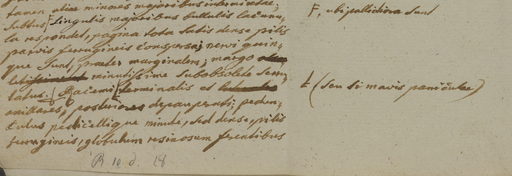 tamen aliae minores majoribus intermixtae,
subtus, singulis majoribus bullulis lacuna
la respondet, pagina tota subtus dense pilis
parvis ferrugineis conspersa; nervi quin,
que sunt, praeter marginalem; margo
minutissime subobsolete serru,
latus. Racemi terminales et
axillares, posteriores depauperati; pedun,
culus pedicellique minute, sed dense, pilis
ferrugineis, globulum resinosum ferentibus
B 10 d. 28
F, ubi pallidiora sunt
t (seu si mavis paniculae)